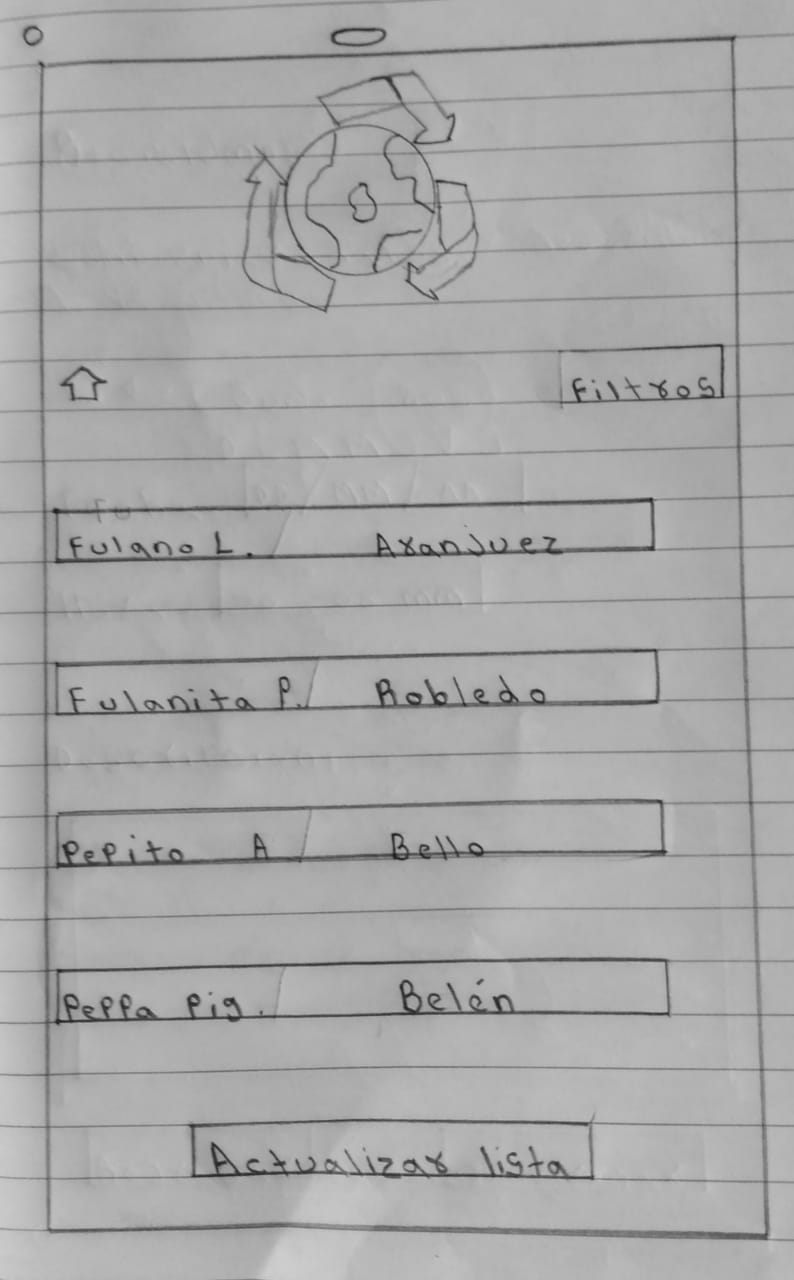 Filtros
Fulano L. Aranjuez
Fulanita P. Robledo
Pepito A Bello
Peppa Pig. Belén
Actualizar lista